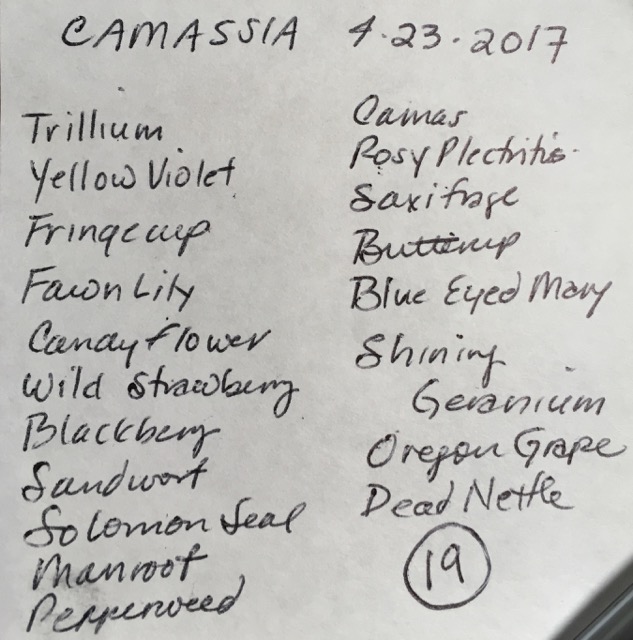 CAMASSIA 4.23.2017
Trillium
Yellow Violet
Fringecup
Fawn Lily
Candy flower
Wild Strawberry
Blackberry
Sandwort
Solomon Seal
Manroot
Pepperweed
Camas
Rosy Plectritis
Saxifrage
Buttercup
Blue Eyed Mary
Shining
Geranium
Oregon Grape
Dead Nettle
19